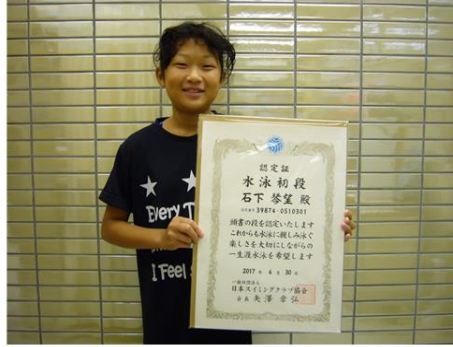 認定証
水泳初段
石下 琴望 殿
認定番号 39874-0510301
頭書の段を認定いたします
これからも水泳に親しみ泳ぐ
楽しさを大切にしながらの
一生涯水泳を希望します
2017年6月30日
一般社団法人
日本スイミングクラブ協会
会長 矢澤 章弘
Every T
I Feel